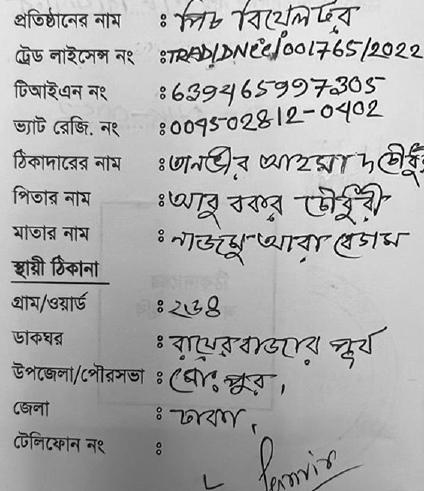 প্রতিষ্ঠানের নাম : পিচ বিথেলটিব
ট্রেড লাইসেন্স নং : TRAD/DNCC/001765/2022
টিআইএন নং : 639465997305
ভ্যাট রেজি. নং : 004502812-0402
ঠিকাদারের নাম : তানভীর আহমাদ চৌধুরী
পিতার নাম : আবু বকর চৌধুরী
মাতার নাম : নাজমু আরা বেগম
স্থায়ী ঠিকানা
গ্রাম/ওয়ার্ড : ২৩৪
ডাকঘর : রায়ের বাজার পূর্ব
উপজেলা/পৌরসভা : মোঃ পুর,
জেলা : ঢাকা,
টেলিফোন নং :